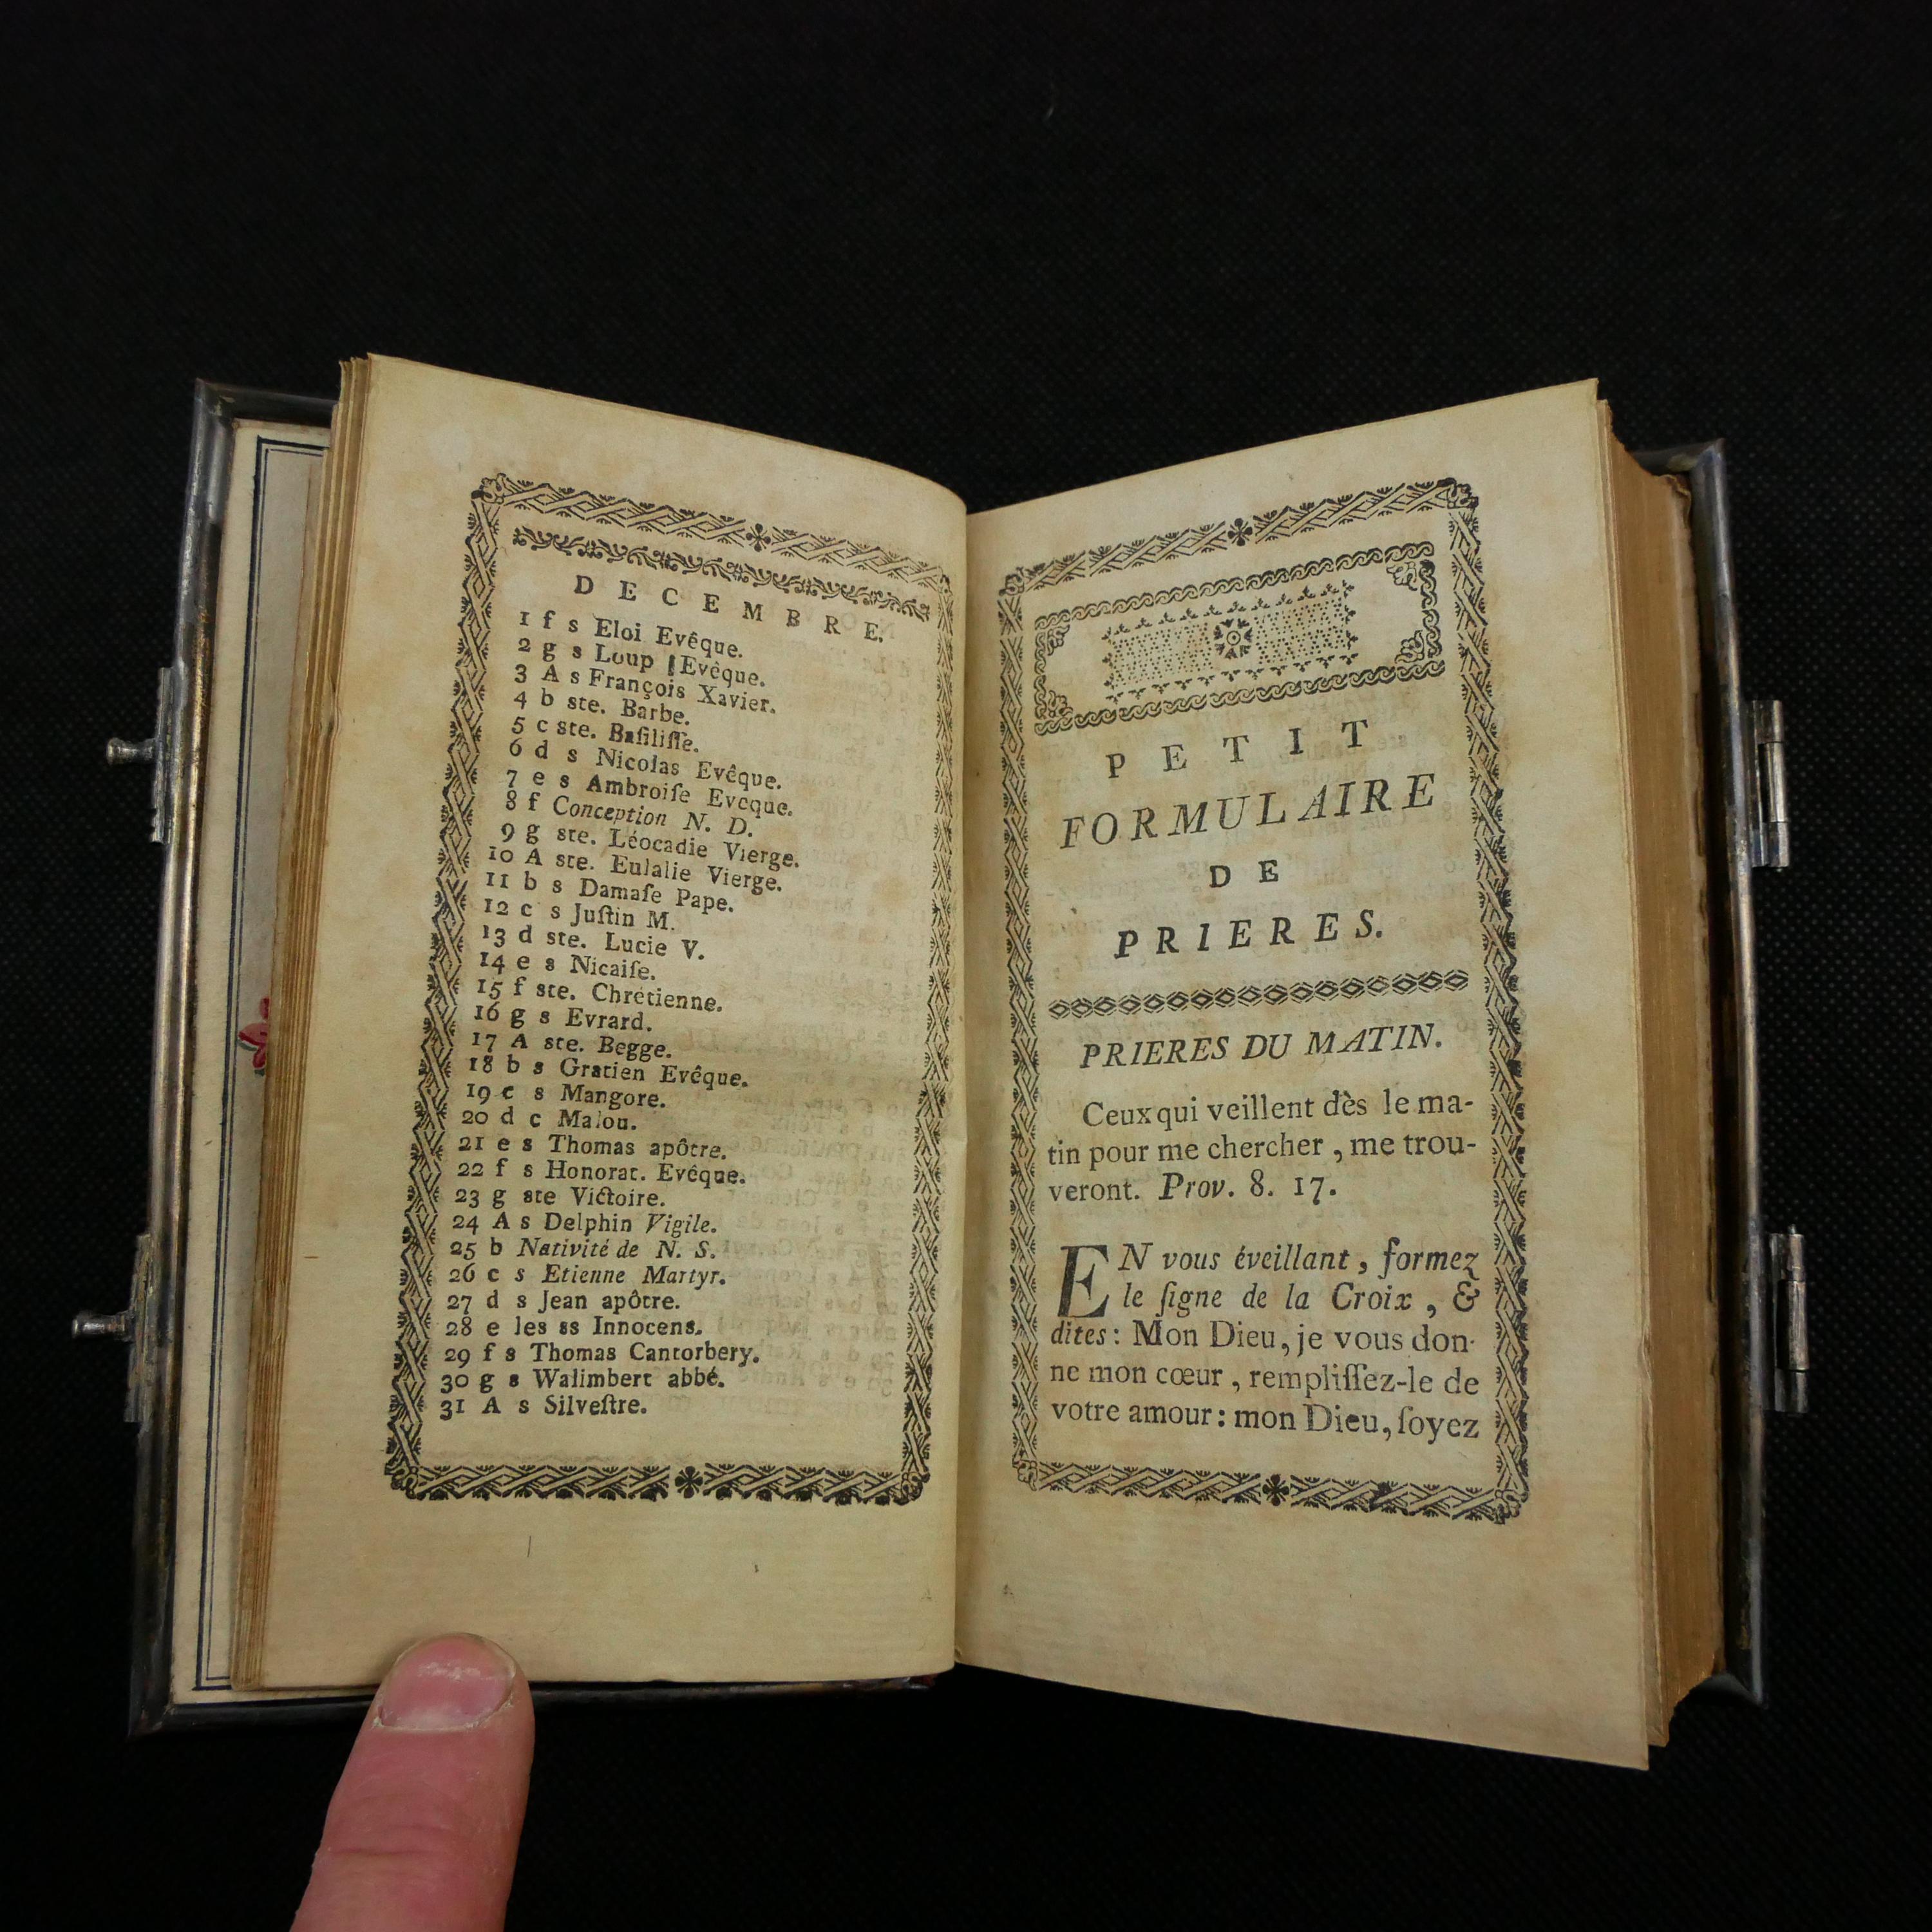 DECEMBRE.
1 f s Eloi Evêque.
2 g s Loup Evêque.
3 A s François Xavier.
4 b ste. Barbe.
5 c ste. Baſiliſſe.
6 d s Nicolas Evêque.
7 e s Ambroiſe Eveque.
8 f Conception N. D.
9 g ste. Léocadie Vierge.
10 A ste. Eulalie Vierge.
11 b s Damaſe Pape.
12 c s Juſtin M.
13 d ste. Lucie V.
14 e s Nicaiſe.
15 f ste. Chrétienne.
16 g s Evrard.
17 A ste. Begge.
18 b s Gratien Evêque.
19 c s Mangore.
20 d c Malou.
21 e s Thomas apôtre.
22 f s Honorat. Evêque.
23 g ste Victoire.
24 A s Delphin Vigile.
25 b Nativité de N. S.
26 c s Etienne Martyr.
27 d s Jean apôtre.
28 e les ss Innocens.
29 f s Thomas Cantorbery.
30 g s Walimbert abbé.
31 A s Silveſtre.
PETIT
FORMULAIRE
DE
PRIERES.
PRIERES DU MATIN.
Ceux qui veillent dès le ma-
tin pour me chercher, me trou-
veront. Prov. 8. 17.
EN vous éveillant, formez
le ſigne de la Croix, &
dites: Mon Dieu, je vous don-
ne mon cœur, rempliſſez-le de
votre amour: mon Dieu, ſoyez